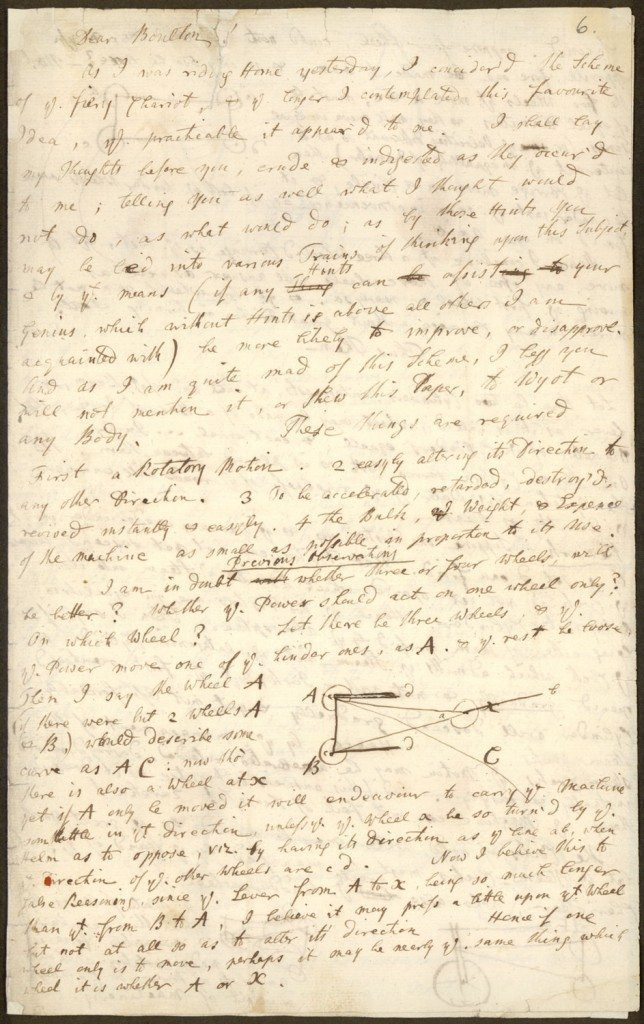 6.
Dear Boulton!
As I was riding Home yesterday, I consider'd the Scheme
of ye. fiery Chariot, & ye longer I contemplated this favourite
Idea, ye. practicable it appear'd to me. I shall lay
my Thoughts before you, crude & indigested as they occur'd
to me; telling you as well what I thought would
not do, as what would do; as by those Hints you
may be led into various Trains of thinking upon this Subject,
& by yt. means (if any Hints can assist your
Genius, which without Hints is above all others I am
acquainted with) be more likely to improve, or disapprove.
And as I am quite mad of this Scheme, I beg you
will not mention it, or shew this Paper, to Wyot or
any Body. These things are required
First a Rotatory Motion. 2 easyly altering its Direction to
any other Direction. 3 To be accelerated, retarded, destroy'd,
revived instantly & easyly. 4 the Bulk, ye Weight, & Expence
of the machine as small as possible in proportion to its Use.
Previous Observations
I am in doubt whether three or four wheels, will
be better? Whether ye. Power should act on one wheel only?
On which Wheel? Let there be three Wheels, & ye.
ye. Power move one of ye. hinder ones, as A. & ye. rest be loose
then I say the wheel A
if there were but 2 wheels A
& B,) would describe some
curve as AC: now tho
there is also a wheel at x
A d
a x b
B d
C
yet if A only be moved it will endeavour to carry ye Machine
some little in yt direction, unless ye. Wheel a be so turn'd by ye.
Helm as to oppose, viz. by having its direction as ye line ab, when
ye. direction of ye. other wheels are cd. Now I believe this to
false Reasoning, since ye. Lever from A to x, being so much longer
than yt. from B to A, I believe it may press a little upon yt Wheel
but not at all so as to alter its direction Hence if one
wheel only is to move, perhaps it may be nearly ye. same thing which
wheel it is whether A or X.